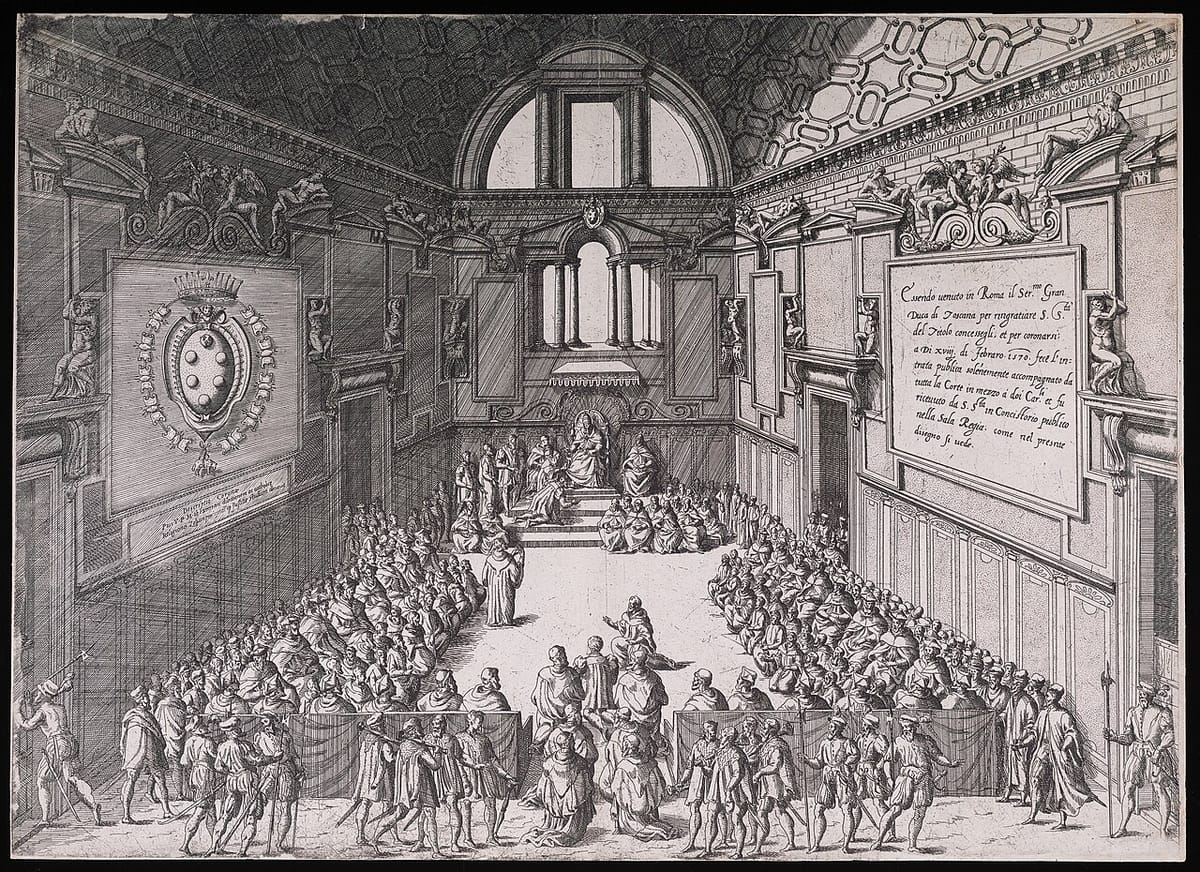 Essendo uenuto in Roma il Ser.mo Gran
Duca di Toscana per ringratiare S. S.tà
del Titolo concessogli, et per coronarsi
a Di xviij. di febraro .1570. fece l'in-
trata publica solenemente accompagnato da
tutta la Corte in mezzo à doi Car.li et fu
riceuuto da S. S.tà in Concistorio publico
nella Sala Regia. come nel presente
disegno si uede.